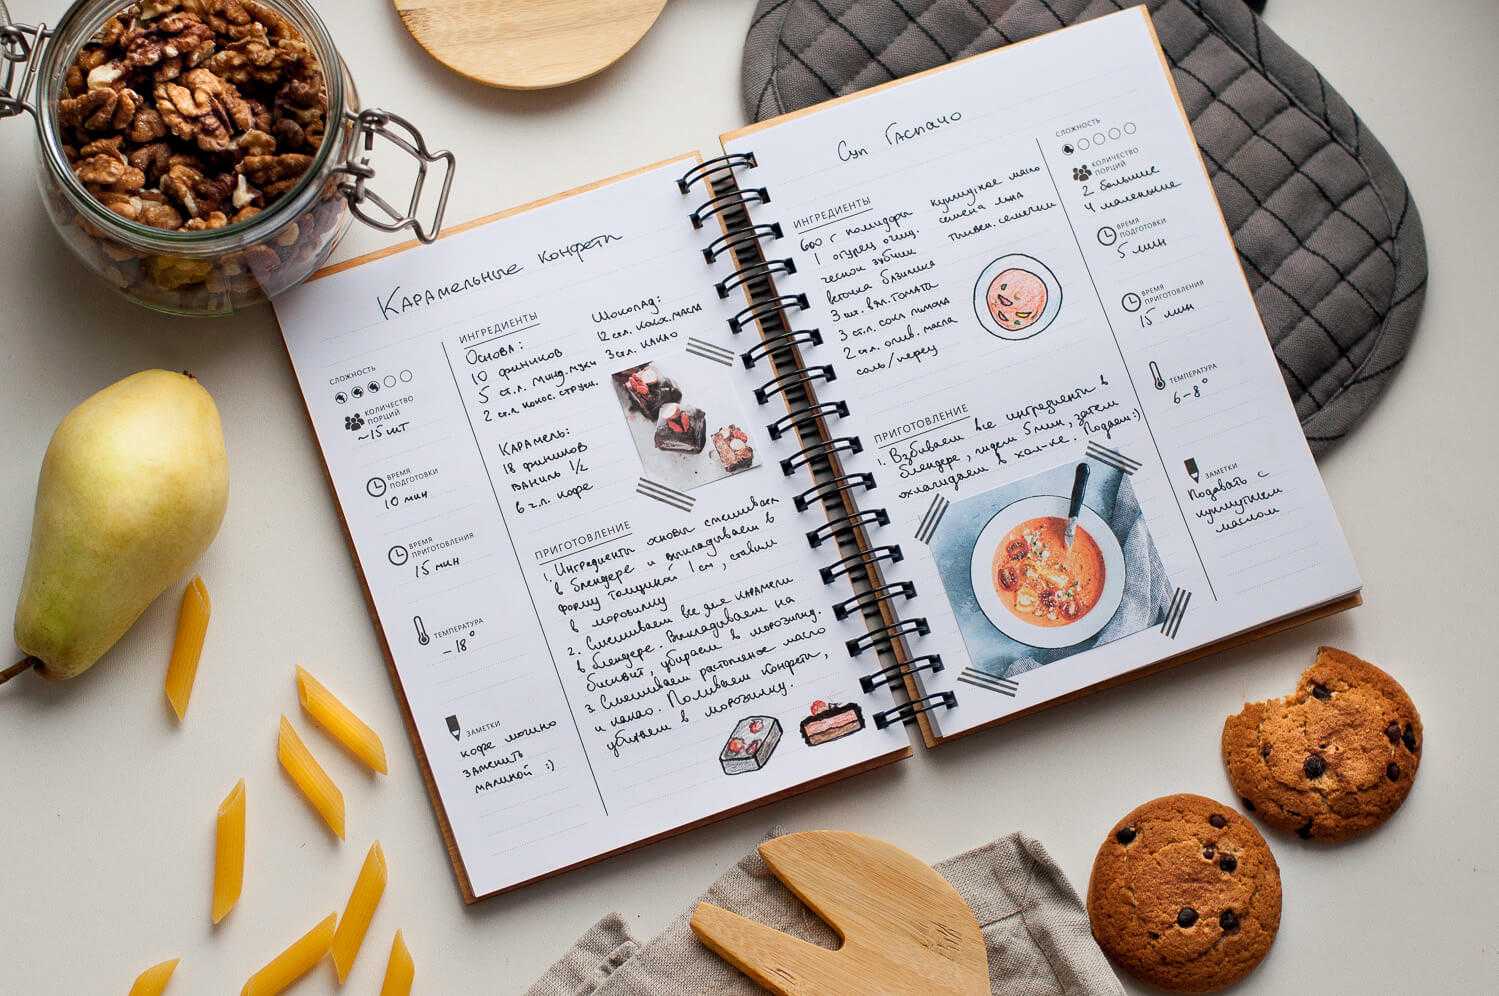 Карамельные конфеты
СЛОЖНОСТЬ
КОЛИЧЕСТВО
ПОРЦИЙ
~15 шт
ВРЕМЯ
ПОДГОТОВКИ
10 мин
ВРЕМЯ
ПРИГОТОВЛЕНИЯ
15 мин
ТЕМПЕРАТУРА
-18°
ЗАМЕТКИ
кофе можно
заменить
малиной :)
ИНГРЕДИЕНТЫ
Основа:
10 фиников
5 ст.л. минд. муки
2 ст.л. кокос. струж.
Карамель:
18 фиников
ваниль 1/2
6 г.л. кофе
Шоколад:
12 ст.л. кокос. масла
3 ст.л. какао
ПРИГОТОВЛЕНИЕ
1. Ингредиенты основы смешиваем
в блендере и выкладываем в
форму толщиной 1 см, ставим
в морозилку
2. Смешиваем все для карамели
в блендере. Выкладываем на
бисквит, убираем в морозилку.
3. Смешиваем растопленое масло
и какао. Поливаем конфеты,
убираем в морозилку.
Суп Гаспачо
ИНГРЕДИЕНТЫ
600 г помидоры
1 огурец очищ.
чеснок зубчик
веточка базилика
3 шт. вял. томата
3 ст.л. сока лимона
2 ст.л. олив. масла
соль/перец
кунжутное масло
семена льна
тыквен. семечки
ПРИГОТОВЛЕНИЕ
1. Взбиваем все ингредиенты в
блендере, ждем 5 мин, затем
охлаждаем в хол-ке. Подаем :)
СЛОЖНОСТЬ
КОЛИЧЕСТВО
ПОРЦИЙ
2 большие
4 маленькие
ВРЕМЯ
ПОДГОТОВКИ
5 мин
ВРЕМЯ
ПРИГОТОВЛЕНИЯ
15 мин
ТЕМПЕРАТУРА
6-8°
ЗАМЕТКИ
Подавать с
кунжутным
маслом